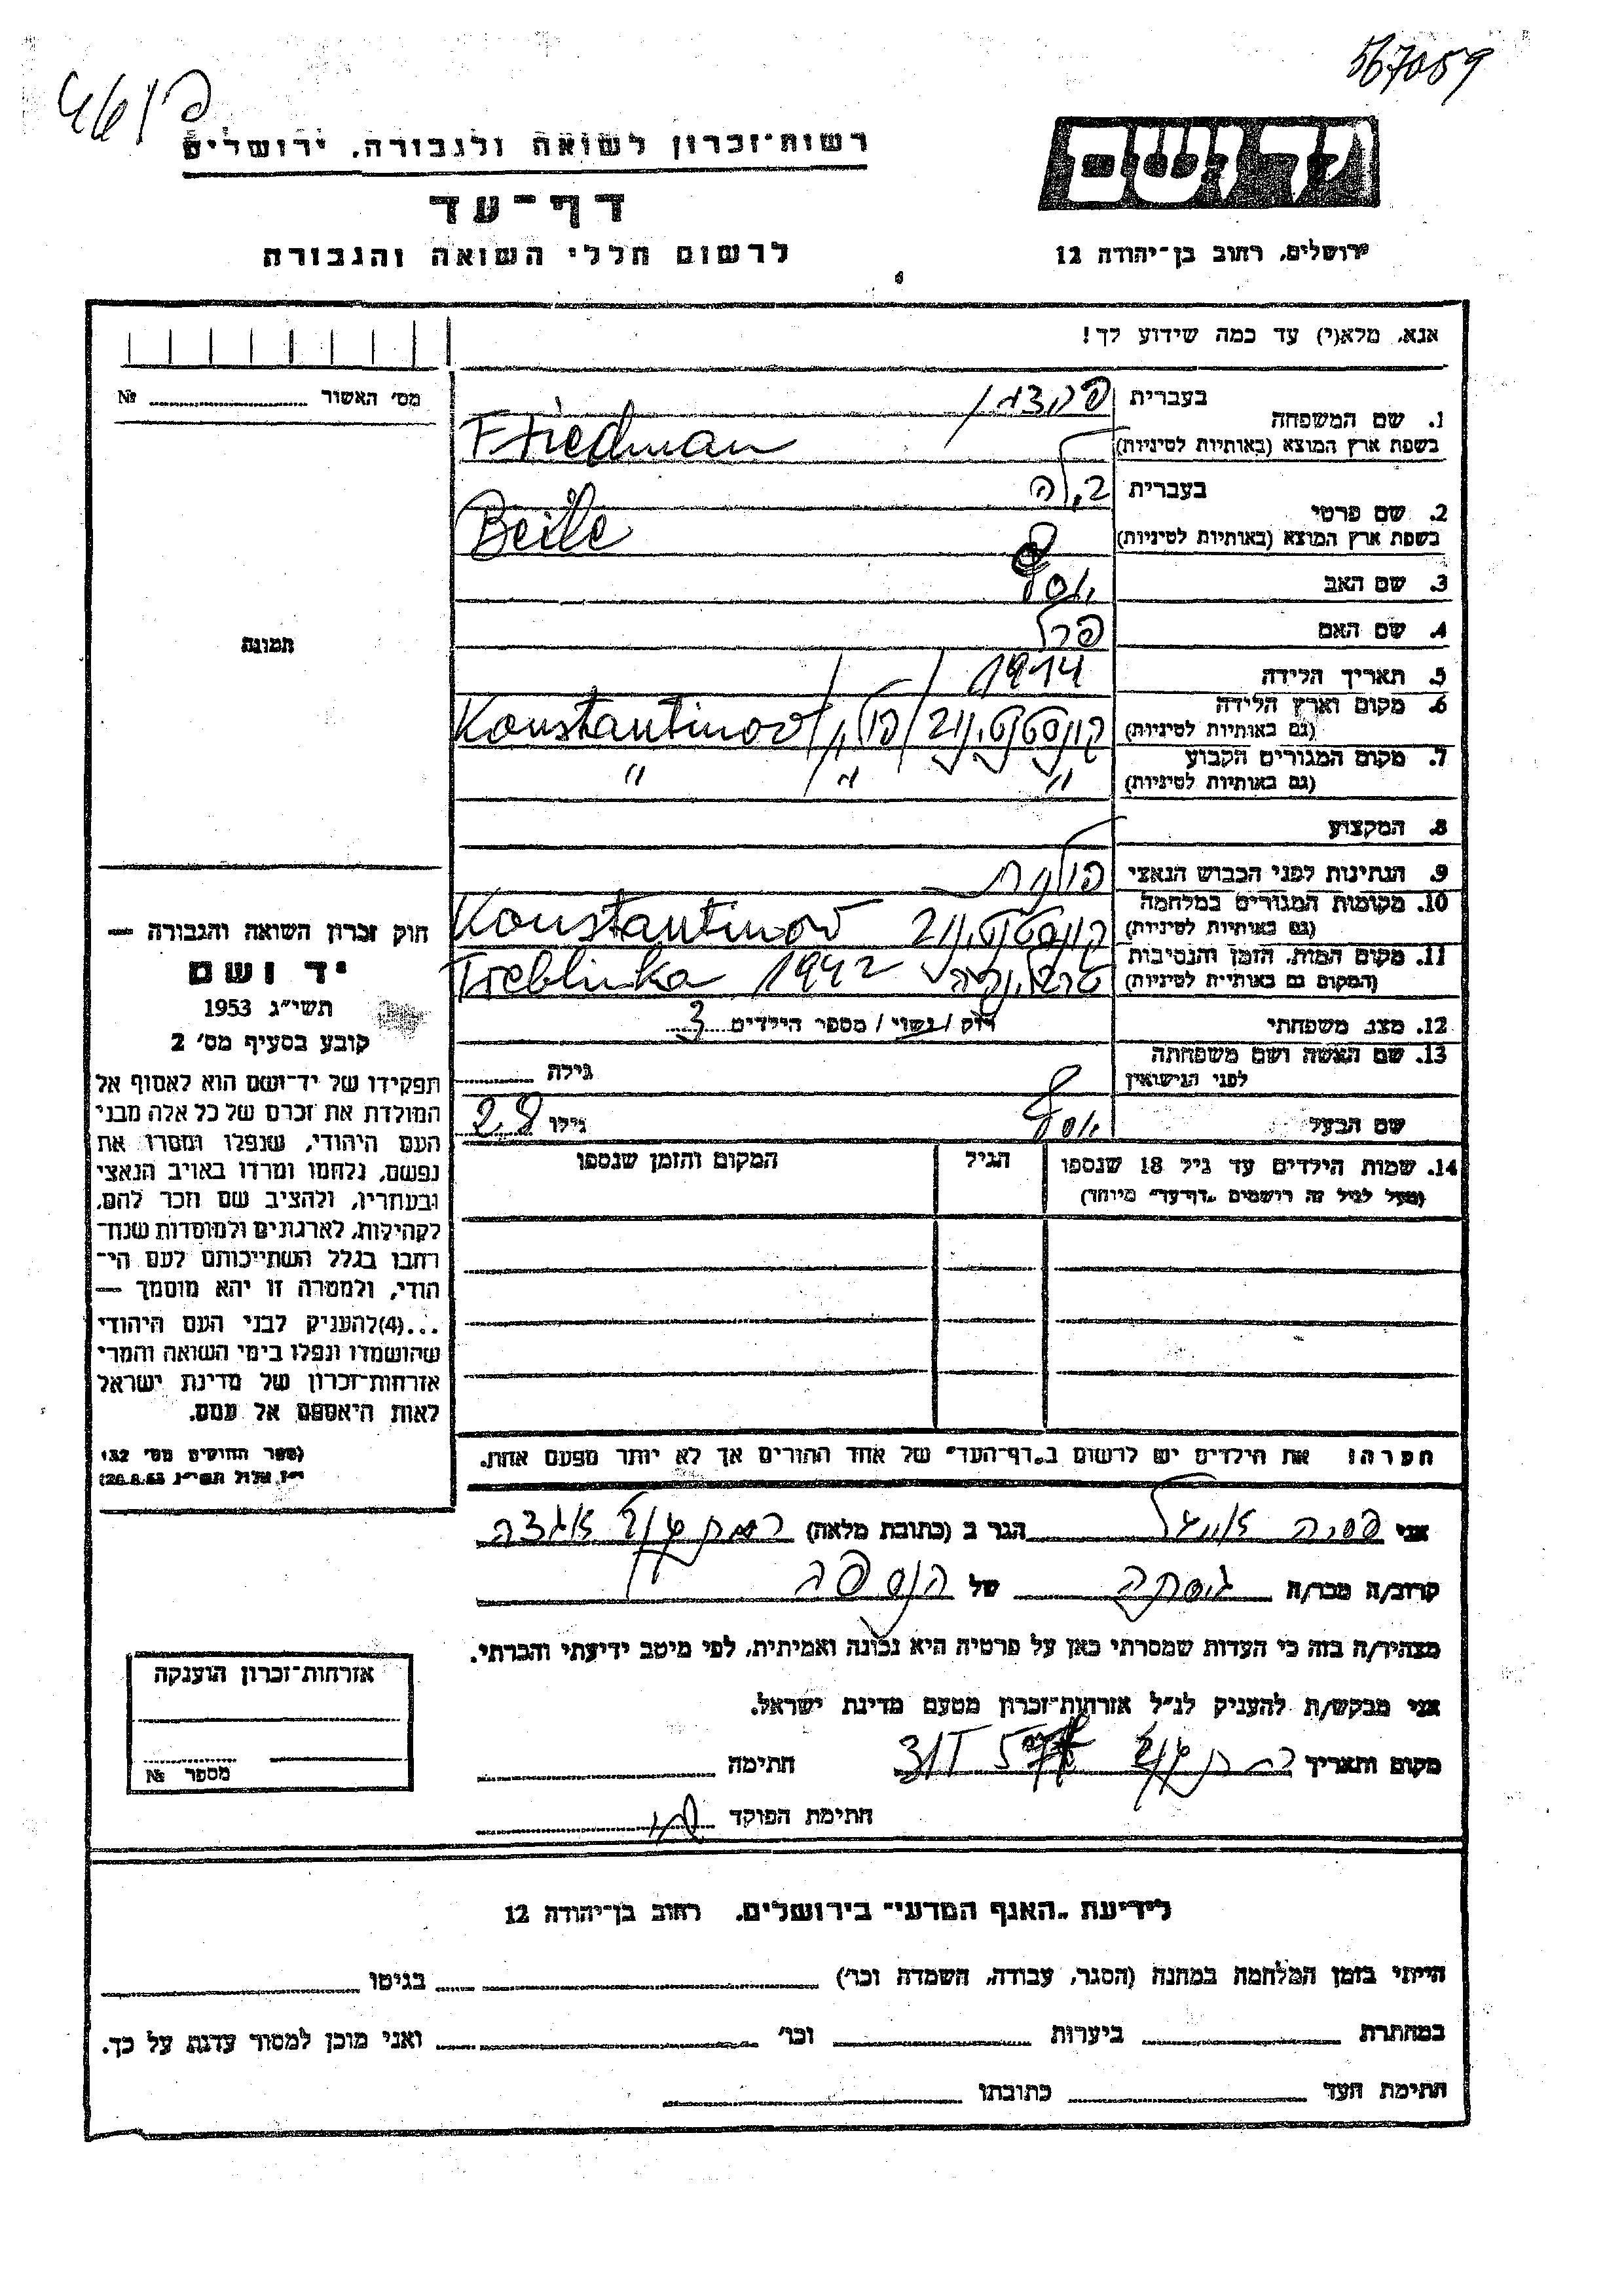 567059
רשות־זכרון לשואה ולגבורה, ירושלים
יד ושם
דף־עד
לרשום חללי השואה והגבורה
ירושלים, רחוב בן־יהודה 12
אנא, מלא(י) עד כמה שידוע לך!
מס׳ האשור № 
1. שם המשפחה
בעברית פרידמן
בשפת ארץ המוצא (באותיות לטיניות) Friedman
2. שם פרטי
בעברית בילה
בשפת ארץ המוצא (באותיות לטיניות) Beile
3. שם האב יוסף
4. שם האם פרל
תמונה
5. תאריך הלידה 1914
6. מקום וארץ הלידה
(גם באותיות לטיניות) קונסטנטינוב / פולין / Konstantinov
7. מקום המגורים הקבוע
(גם באותיות לטיניות) " " "
8. המקצוע
9. הנתינות לפני הכבוש הנאצי פולנית
10. מקומות המגורים במלחמה
(גם באותיות לטיניות) קונסטנטינוב Konstantinov
11. מקום המות, הזמן והנסיבות
(המקום גם באותיות לטיניות) טרבלינקה 1942 Treblinka
12. מצב משפחתי רוק / נשוי / מספר הילדים 3
13. שם האשה ושם משפחתה
לפני הנישואין גילה
שם הבעל יוסף גילו 28
14. שמות הילדים עד גיל 18 שנספו הגיל המקום והזמן שנספו
(מעל לגיל זה רושמים „דף־עד" מיוחד)
חוק זכרון השואה והגבורה —
יד ושם
תשי״ג 1953
קובע בסעיף מס׳ 2
תפקידו של יד־ושם הוא לאסוף אל
המולדת את זכרם של כל אלה מבני
העם היהודי, שנפלו ומסרו את
נפשם, נלחמו ומרדו באויב הנאצי
ובעוזריו, ולהציב שם וזכר להם,
לקהילות, לארגונים ולמוסדות שנח־
רבו בגלל השתייכותם לעם הי־
הודי, ולמטרה זו יהא מוסמך —
...(4)להעניק לבני העם היהודי
שהושמדו ונפלו בימי השואה והמרי
אזרחות־זכרון של מדינת ישראל
לאות היאספם אל עמם.
(ספר החוקים מס׳ 132
י״ז אלול תשי״ג 28.8.53)
הערה: את הילדים יש לרשום ב„דף־העד" של אחד ההורים אך לא יותר מפעם אחת.
אני הגר ב (כתובת מלאה)
קרוב/ה מכר/ה גיסתה של הנספה
מצהיר/ה בזה כי העדות שמסרתי כאן על פרטיה היא נכונה ואמיתית, לפי מיטב ידיעתי והכרתי.
אני מבקש/ת להעניק לנ״ל אזרחות־זכרון מטעם מדינת ישראל.
מקום ותאריך חתימה
חתימת הפוקד
אזרחות־זכרון הוענקה
מספר №
לידיעת „האגף המדעי" בירושלים, רחוב בן־יהודה 12
הייתי בזמן המלחמה במחנה (הסגר, עבודה, השמדה וכו׳) בגיטו
במחתרת ביערות וכו׳ ואני מוכן למסור עדות על כך.
חתימת העד כתובתו